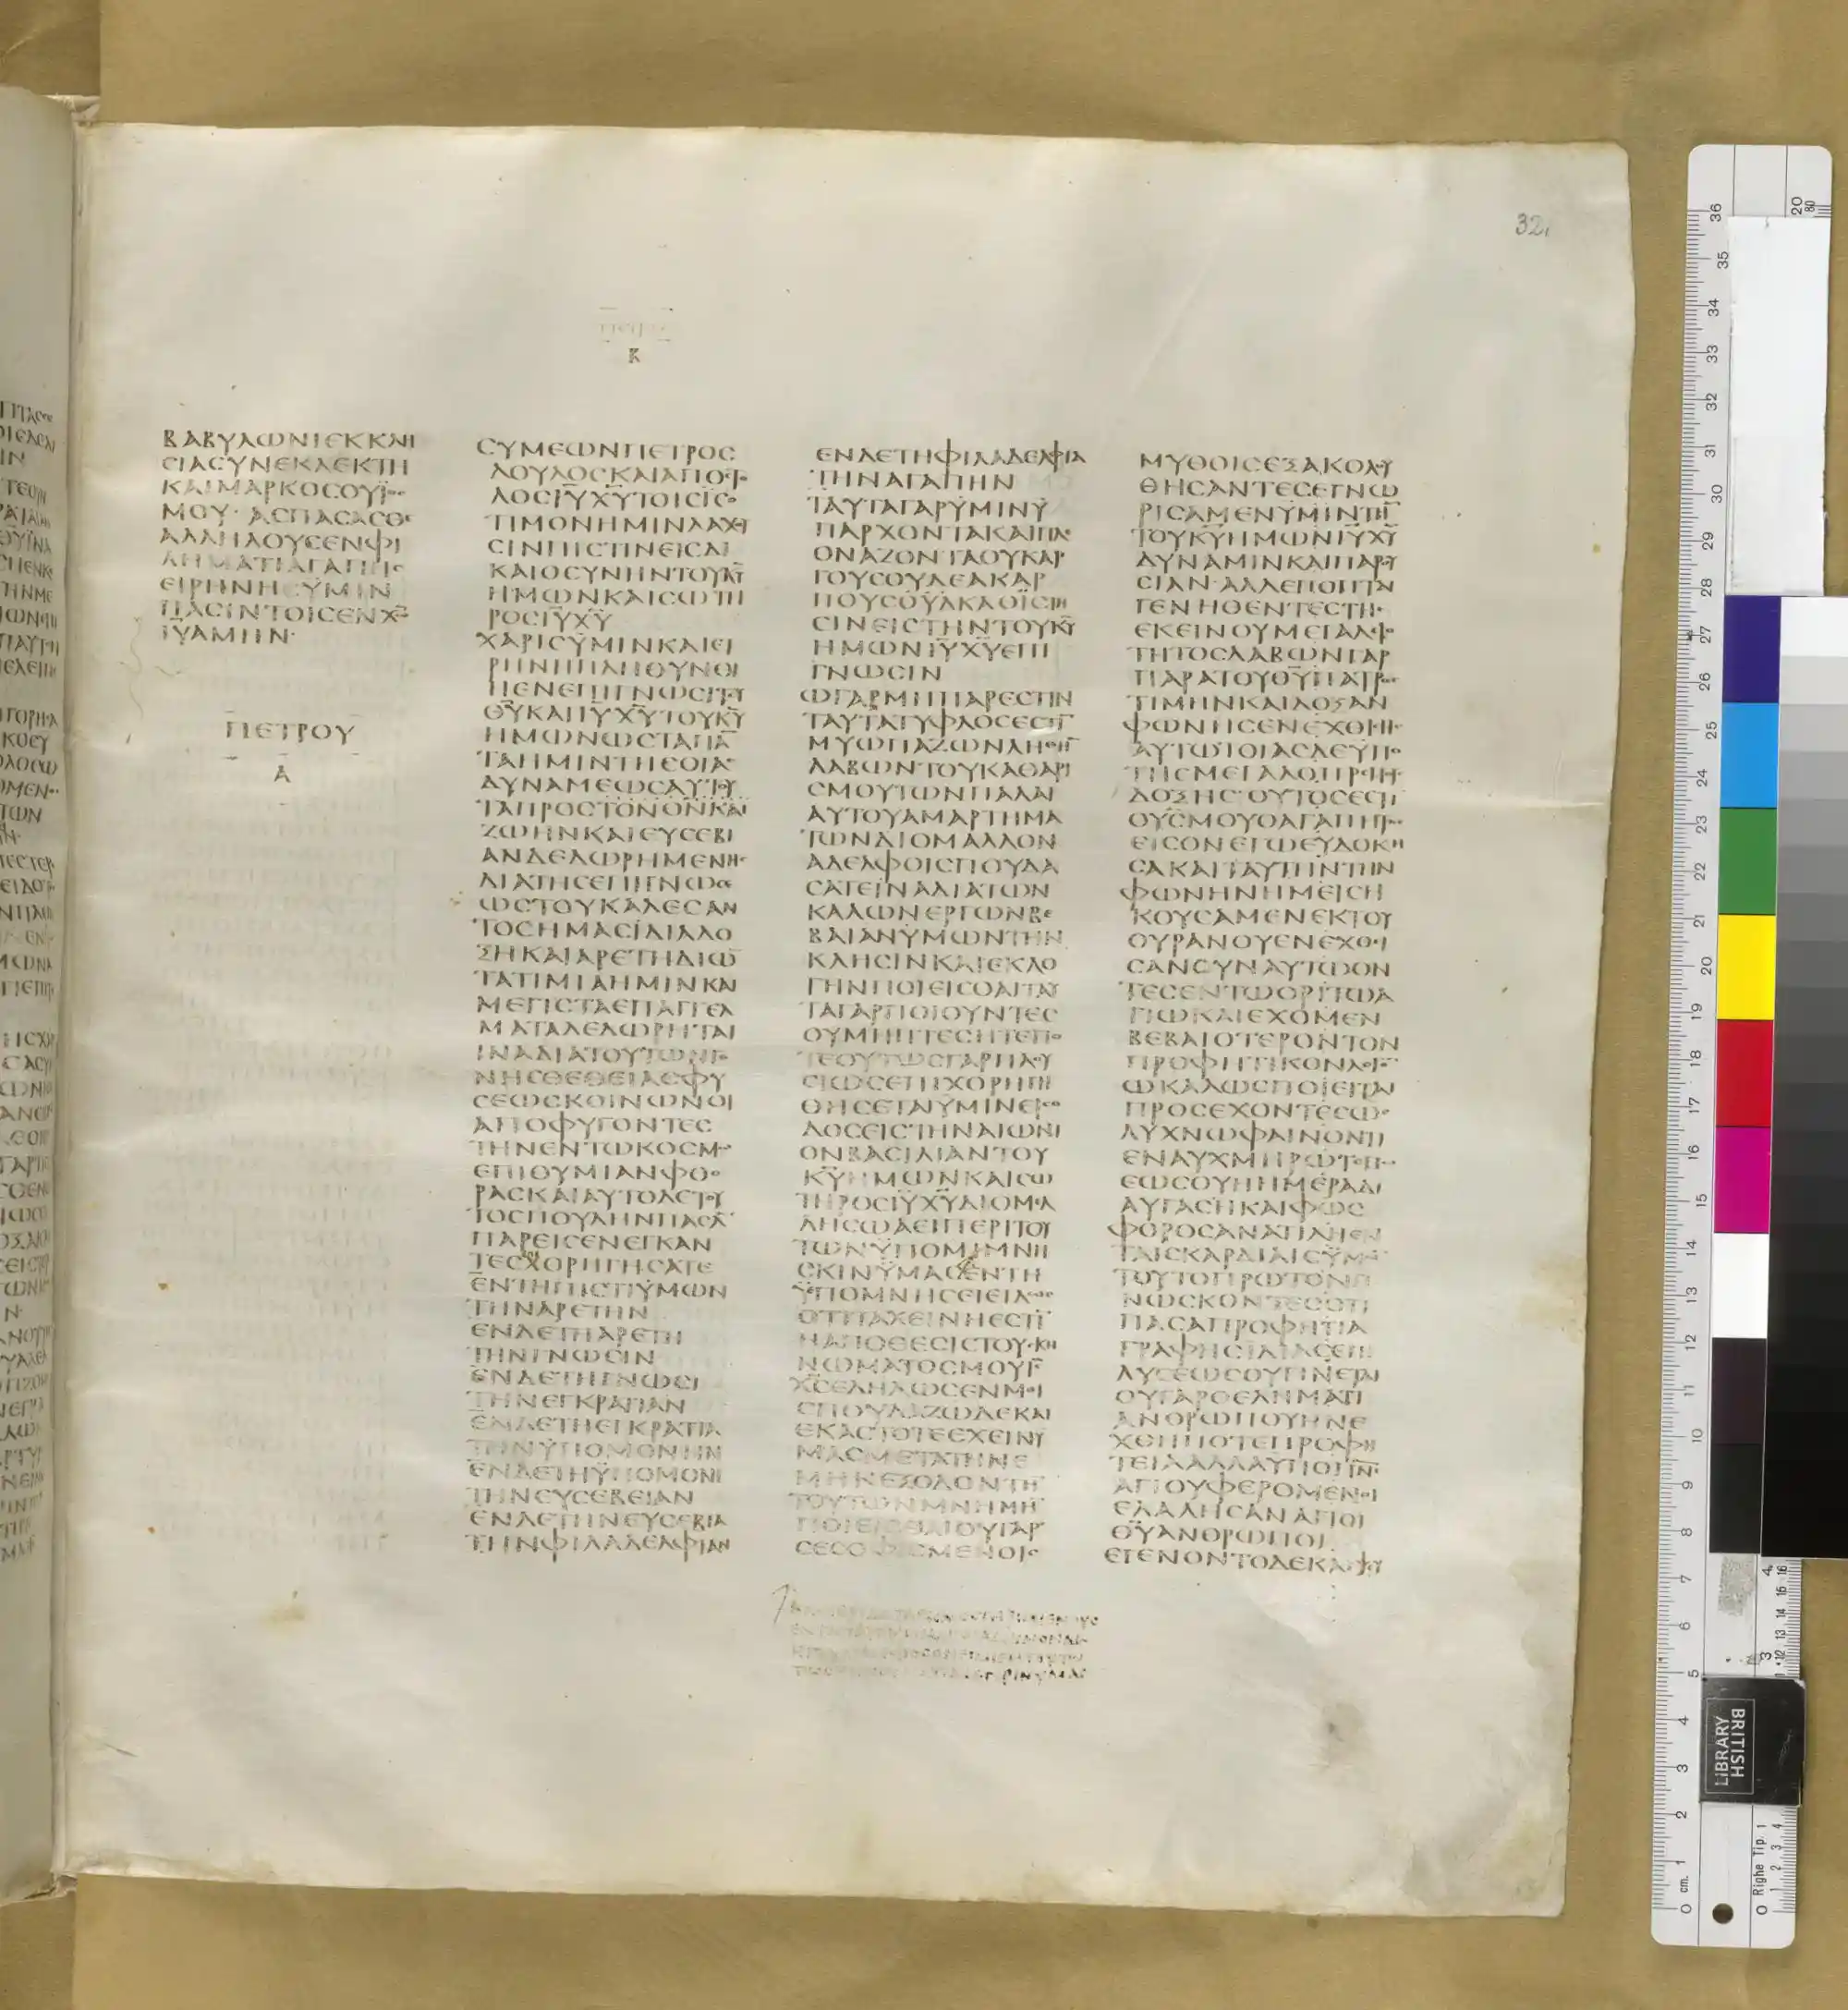 32
Β
ΒΑΒΥΛΩΝΙΕΚΚΛΗ
ΣΙΑΣΥΝΕΚΛΕΚΤΗ
ΚΑΙΜΑΡΚΟΣΟΥΪΟΣ
ΜΟΥ· ΑΣΠΑΣΑΣΘΕ
ΑΛΛΗΛΟΥΣΕΝΦΙ
ΛΗΜΑΤΙΑΓΑΠΗΣ
ΕΙΡΗΝΗΫΜΙΝ
ΠΑΣΙΝΤΟΙΣΕΝΧΩ
ΙΥΑΜΗΝ·
ΠΕΤΡΟΥ
Α
ΣΥΜΕΩΝΠΕΤΡΟΣ
ΔΟΥΛΟΣΚΑΙΑΠΟΣΤΟ
ΛΟΣΙΥΧΥΤΟΙΣΪΣΟ
ΤΙΜΟΝΗΜΙΝΛΑΧΟΥ
ΣΙΝΠΙΣΤΙΝΕΙΣΔΙ
ΚΑΙΟΣΥΝΗΝΤΟΥΚΥ
ΗΜΩΝΚΑΙΣΩΤΗ
ΡΟΣΙΥΧΥ
ΧΑΡΙΣΫΜΙΝΚΑΙΕΙ
ΡΗΝΗΠΛΗΘΥΝΘΙ
ΗΕΝΕΠΙΓΝΩΣΙΤΟΥ
ΘΥΚΑΙΙΥΧΥΤΟΥΚΥ
ΗΜΩΝΩΣΤΑΠΑ
ΤΑΗΜΙΝΤΗΣΘΙΑΣ
ΔΥΝΑΜΕΩΣΑΥΤΟΥ
ΤΑΠΡΟΣΤΟΝΘΝΚΑΙ
ΖΩΗΝΚΑΙΕΥΣΕΒΙ
ΑΝΔΕΔΩΡΗΜΕΝΗΣ
ΔΙΑΤΗΣΕΠΙΓΝΩΣΕ
ΩΣΤΟΥΚΑΛΕΣΑΝ
ΤΟΣΗΜΑΣΙΔΙΑΔΟ
ΞΗΚΑΙΑΡΕΤΗΔΙΩ
ΤΑΤΙΜΙΑΗΜΙΝΚΑΙ
ΜΕΓΙΣΤΑΕΠΑΓΓΕΛ
ΜΑΤΑΔΕΔΩΡΗΤΑΙ
ΙΝΑΔΙΑΤΟΥΤΩΝΓΕ
ΝΗΣΘΕΘΕΙΑΣΦΥ
ΣΕΩΣΚΟΙΝΩΝΟΙ
ΑΠΟΦΥΓΟΝΤΕΣ
ΤΗΝΕΝΤΩΚΟΣΜΩ
ΕΠΙΘΥΜΙΑΝΦΘΟ
ΡΑΣΚΑΙΑΥΤΟΔΕΤΟΥ
ΤΟΣΠΟΥΔΗΝΠΑΣΑ
ΠΑΡΕΙΣΕΝΕΓΚΑΝ
ΤΕΣΧΟΡΗΓΗΣΑΤΕ
ΕΝΤΗΠΙΣΤΙΫΜΩΝ
ΤΗΝΑΡΕΤΗΝ
ΕΝΔΕΤΗΑΡΕΤΗ
ΤΗΝΓΝΩΣΙΝ
ΕΝΔΕΤΗΓΝΩΣΙ
ΤΗΝΕΓΚΡΑΤΙΑΝ
ΕΝΔΕΤΗΕΓΚΡΑΤΙΑ
ΤΗΝΫΠΟΜΟΝΗΝ
ΕΝΔΕΤΗΫΠΟΜΟΝΗ
ΤΗΝΕΥΣΕΒΕΙΑΝ
ΕΝΔΕΤΗΝΕΥΣΕΒΙΑ
ΤΗΝΦΙΛΑΔΕΛΦΙΑΝ
ΕΝΔΕΤΗΦΙΛΑΔΕΛΦΙΑ
ΤΗΝΑΓΑΠΗΝ
ΤΑΥΤΑΓΑΡΫΜΙΝΫ
ΠΑΡΧΟΝΤΑΚΑΙΠΛΕ
ΟΝΑΖΟΝΤΑΟΥΚΑΡ
ΓΟΥΣΟΥΔΕΑΚΑΡ
ΠΟΥΣΟΥΔΚΑΘΪΣΤΗ
ΣΙΝΕΙΣΤΗΝΤΟΥΚΥ
ΗΜΩΝΙΥΧΥΕΠΙ
ΓΝΩΣΙΝ
ΩΓΑΡΜΗΠΑΡΕΣΤΙΝ
ΤΑΥΤΑΤΥΦΛΟΣΕΣΤΙ
ΜΥΩΠΑΖΩΝΛΗΘΗ
ΛΑΒΩΝΤΟΥΚΑΘΑΡΙ
ΣΜΟΥΤΩΝΠΑΛΑΙ
ΑΥΤΟΥΑΜΑΡΤΗΜΑ
ΤΩΝΔΙΟΜΑΛΛΟΝ
ΑΔΕΛΦΟΙΣΠΟΥΔΑ
ΣΑΤΕΙΝΑΔΙΑΤΩΝ
ΚΑΛΩΝΕΡΓΩΝΒΕ
ΒΑΙΑΝΫΜΩΝΤΗΝ
ΚΛΗΣΙΝΚΑΙΕΚΛΟ
ΓΗΝΠΟΙΕΙΣΘΑΙΤΑΥ
ΤΑΓΑΡΠΟΙΟΥΝΤΕΣ
ΟΥΜΗΠΤΕΣΗΤΕΠΟ
ΤΕΟΥΤΩΣΓΑΡΠΛΟΥ
ΣΙΩΣΕΠΙΧΟΡΗΓΗ
ΘΗΣΕΤΑΙΫΜΙΝΕΙΣΟ
ΔΟΣΕΙΣΤΗΝΑΙΩΝΙ
ΟΝΒΑΣΙΛΙΑΝΤΟΥ
ΚΥΗΜΩΝΚΑΙΣΩ
ΤΗΡΟΣΙΥΧΥΔΙΟΜΕΛ
ΛΗΣΩΑΕΙΠΕΡΙΤΟΥ
ΤΩΝΫΠΟΜΙΜΝΗ
ΣΚΙΝΫΜΑΣΕΝΤΗ
ΫΠΟΜΝΗΣΕΙΕΙΔΩΣ
ΟΤΙΤΑΧΕΙΝΗΕΣΤΙ
ΝΩΜΑΤΟΣΜΟΥ
ΧΣΕΔΗΛΩΣΕΝΜΟΙ
ΣΠΟΥΔΑΖΩΔΕΚΑΙ
ΕΚΑΣΤΟΤΕΕΧΕΙΝΫ
ΜΑΣΜΕΤΑΤΗΝΕ
ΜΗΝΕΞΟΔΟΝΤΗ
ΤΟΥΤΩΝΜΝΗΜΗ
ΠΟΙΕΙΣΘΑΙΟΥΓΑΡ
ΣΕΣΟΦΙΣΜΕΝΟΙΣ
ΜΥΘΟΙΣΕΞΑΚΟΛΟΥ
ΘΗΣΑΝΤΕΣΕΓΝΩ
ΡΙΣΑΜΕΝΥΜΙΝΤΗ
ΤΟΥΚΥΗΜΩΝΙΥΧΥ
ΔΥΝΑΜΙΝΚΑΙΠΑΡΟΥ
ΣΙΑΝ·ΑΛΛΕΠΟΠΤΑΙ
ΓΕΝΗΘΕΝΤΕΣΤΗΣ
ΕΚΕΙΝΟΥΜΕΓΑΛΙΟ
ΤΗΤΟΣΛΑΒΩΝΓΑΡ
ΠΑΡΑΤΟΥΘΥΠΑΤΡΟΣ
ΤΙΜΗΝΚΑΙΔΟΞΑΝ
ΦΩΝΗΣΕΝΕΧΘΙΣΗΣ
ΑΥΤΩΤΟΙΑΣΔΕΫΠΟ
ΤΗΣΜΕΓΑΛΟΠΡΕΠΗΣ
ΔΟΞΗΣ·ΟΥΤΟΣΕΣΤΙ
ΟΥΣΜΟΥΟΑΓΑΠΗΤΟΣ
ΕΙΣΟΝΕΓΩΕΥΔΟΚΗ
ΣΑΚΑΙΤΑΥΤΗΝΤΗΝ
ΦΩΝΗΝΗΜΕΙΣΗ
ΚΟΥΣΑΜΕΝΕΚΤΟΥ
ΟΥΡΑΝΟΥΕΝΕΧΘΙ
ΣΑΝΣΥΝΑΥΤΩΟΝ
ΤΕΣΕΝΤΩΟΡΙΤΩΑ
ΓΙΩΚΑΙΕΧΟΜΕΝ
ΒΕΒΑΙΟΤΕΡΟΝΤΟΝ
ΠΡΟΦΗΤΙΚΟΝΛΟΓΟ
ΩΚΑΛΩΣΠΟΙΕΙΤΑΙ
ΠΡΟΣΕΧΟΝΤΕΣΩΣ
ΛΥΧΝΩΦΑΙΝΟΝΤΙ
ΕΝΑΥΧΜΗΡΩΤΟΠΩ
ΕΩΣΟΥΗΗΜΕΡΑΔΙ
ΑΥΓΑΣΗΚΑΙΦΩΣ
ΦΟΡΟΣΑΝΑΤΙΛΗΕΝ
ΤΑΙΣΚΑΡΔΙΑΙΣΫΜΩ
ΤΟΥΤΟΠΡΩΤΟΝΓΙ
ΝΩΣΚΟΝΤΕΣΟΤΙ
ΠΑΣΑΠΡΟΦΗΤΙΑ
ΓΡΑΦΗΣΙΔΙΑΣΕΠΙ
ΛΥΣΕΩΣΟΥΓΙΝΕΤΑΙ
ΟΥΓΑΡΘΕΛΗΜΑΤΙ
ΑΝΘΡΩΠΟΥΗΝΕ
ΧΘΗΠΟΤΕΠΡΟΦΗ
ΤΕΙΑΑΛΛΑΥΠΟΠΝΣ
ΑΓΙΟΥΦΕΡΟΜΕΝΟΙ
ΕΛΑΛΗΣΑΝΑΓΙΟΙ
ΘΥΑΝΘΡΩΠΟΙ
ΕΓΕΝΟΝΤΟΔΕΚΑΙΨΕΥ
BRITISH
LIBRARY